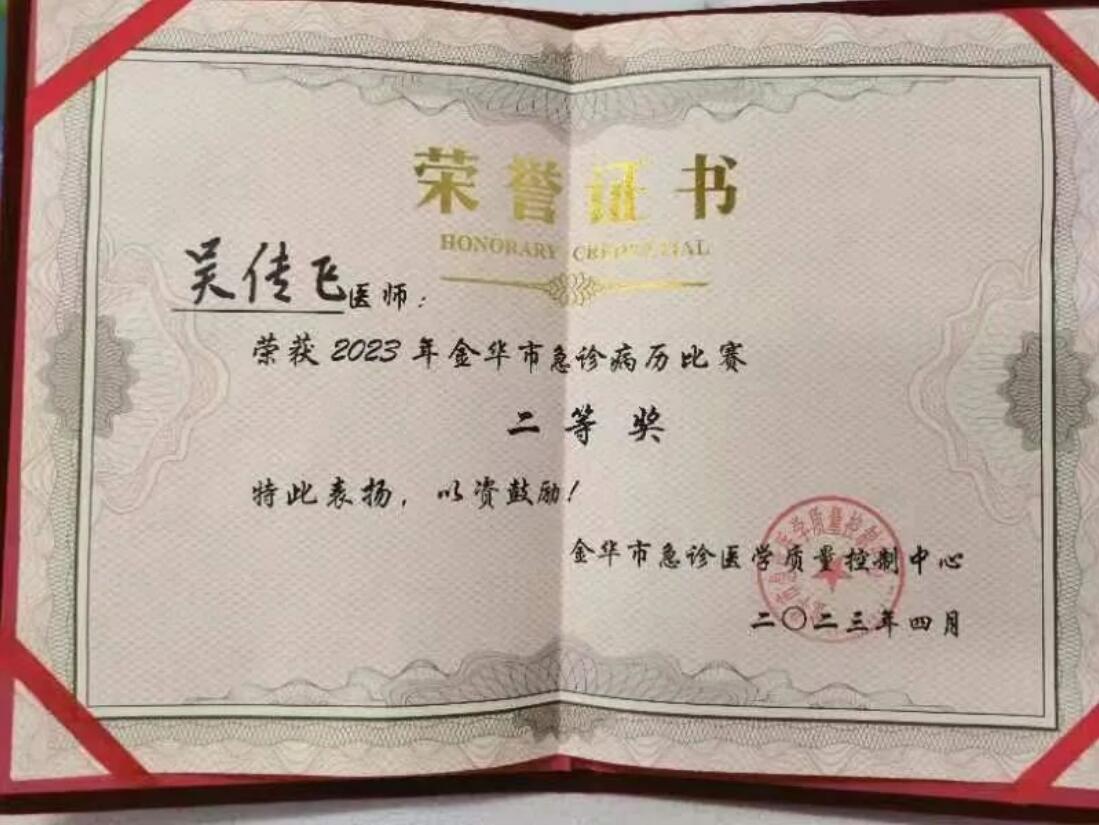 荣誉证书
HONORARY CREDENTIAL
吴传飞医师：
荣获2023年金华市急诊病历比赛
二等奖
特此表扬，以资鼓励！
金华市急诊医学质量控制中心
二〇二三年四月